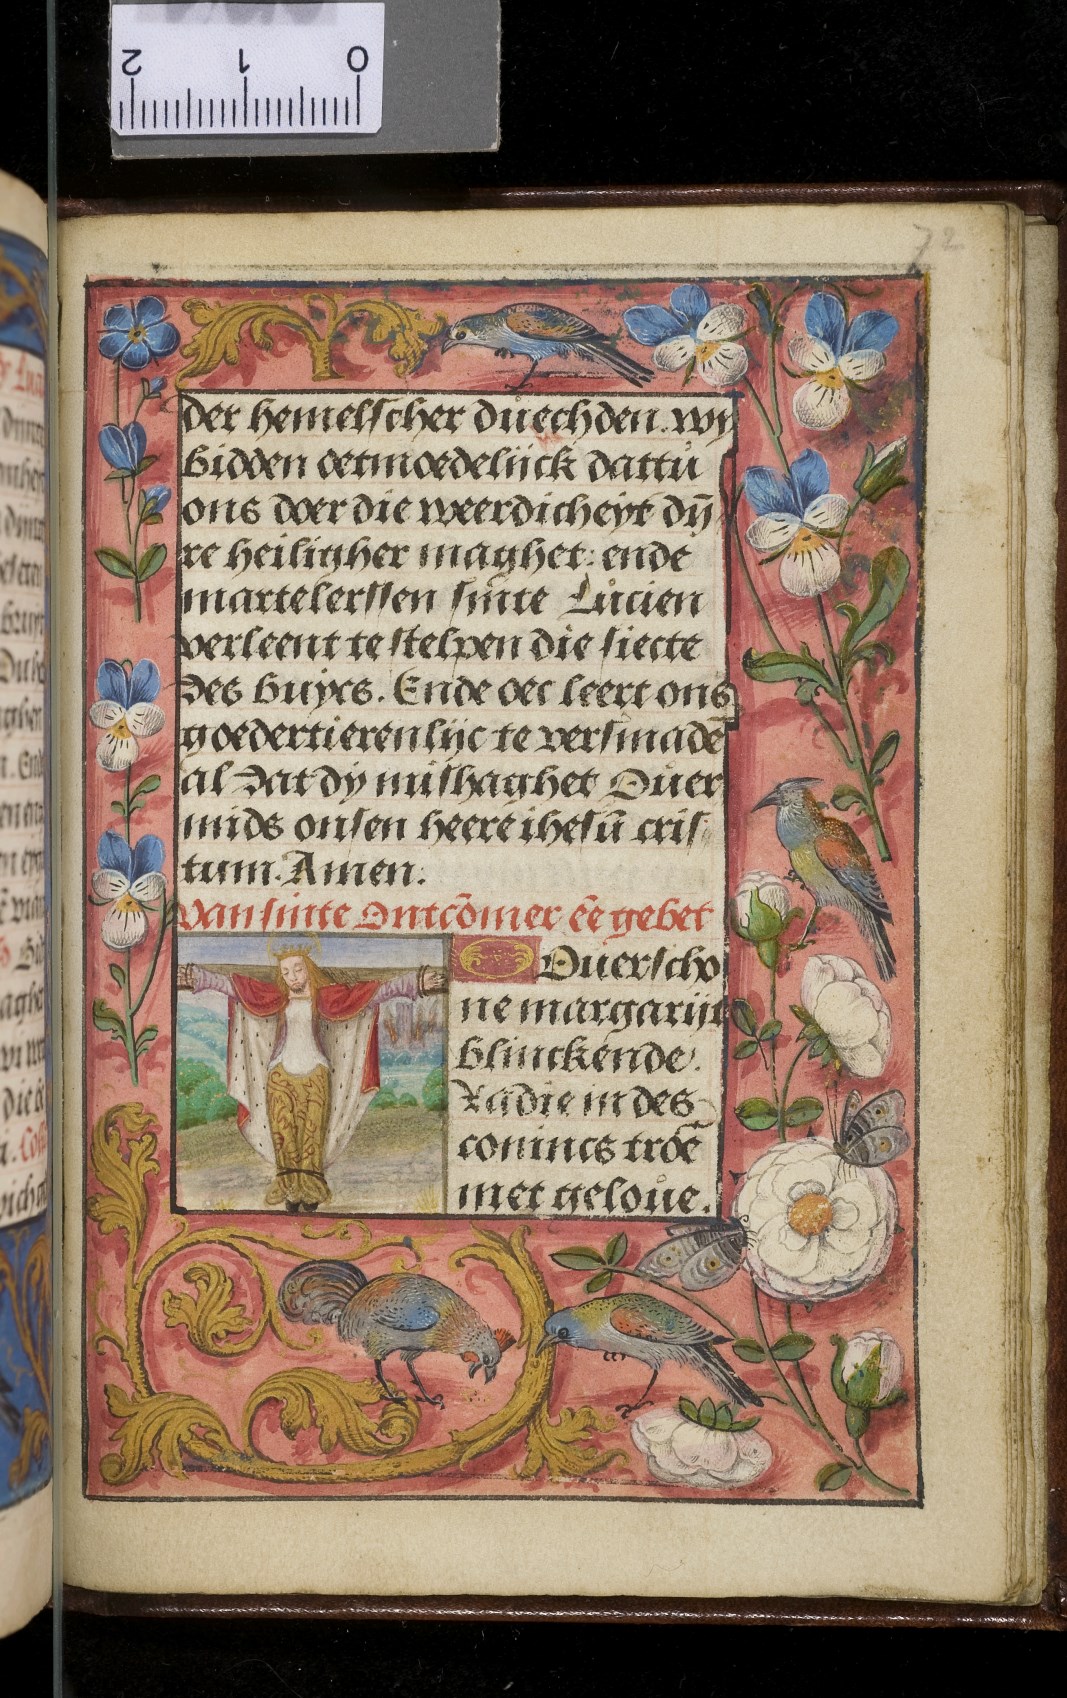 2 1 0
72
der hemelscher duechden. wy
bidden oetmoedelijck dattu
ons doer die weerdicheyt dyn̄
re heiligher maghet: ende
martelerssen sinte Lucien
verleent te stelpen die siecte
des buycs. Ende oec leert ons
goedertierenlijc te versmadē
al dat dy mishaghet Ouer
mids onsen heere ihesū cris
tum. Amen.
Van sinte Ontcōmer eē gebet
Ouerscho
ne margarijt
blinckende.
die in des
conincs troē
met geloue.